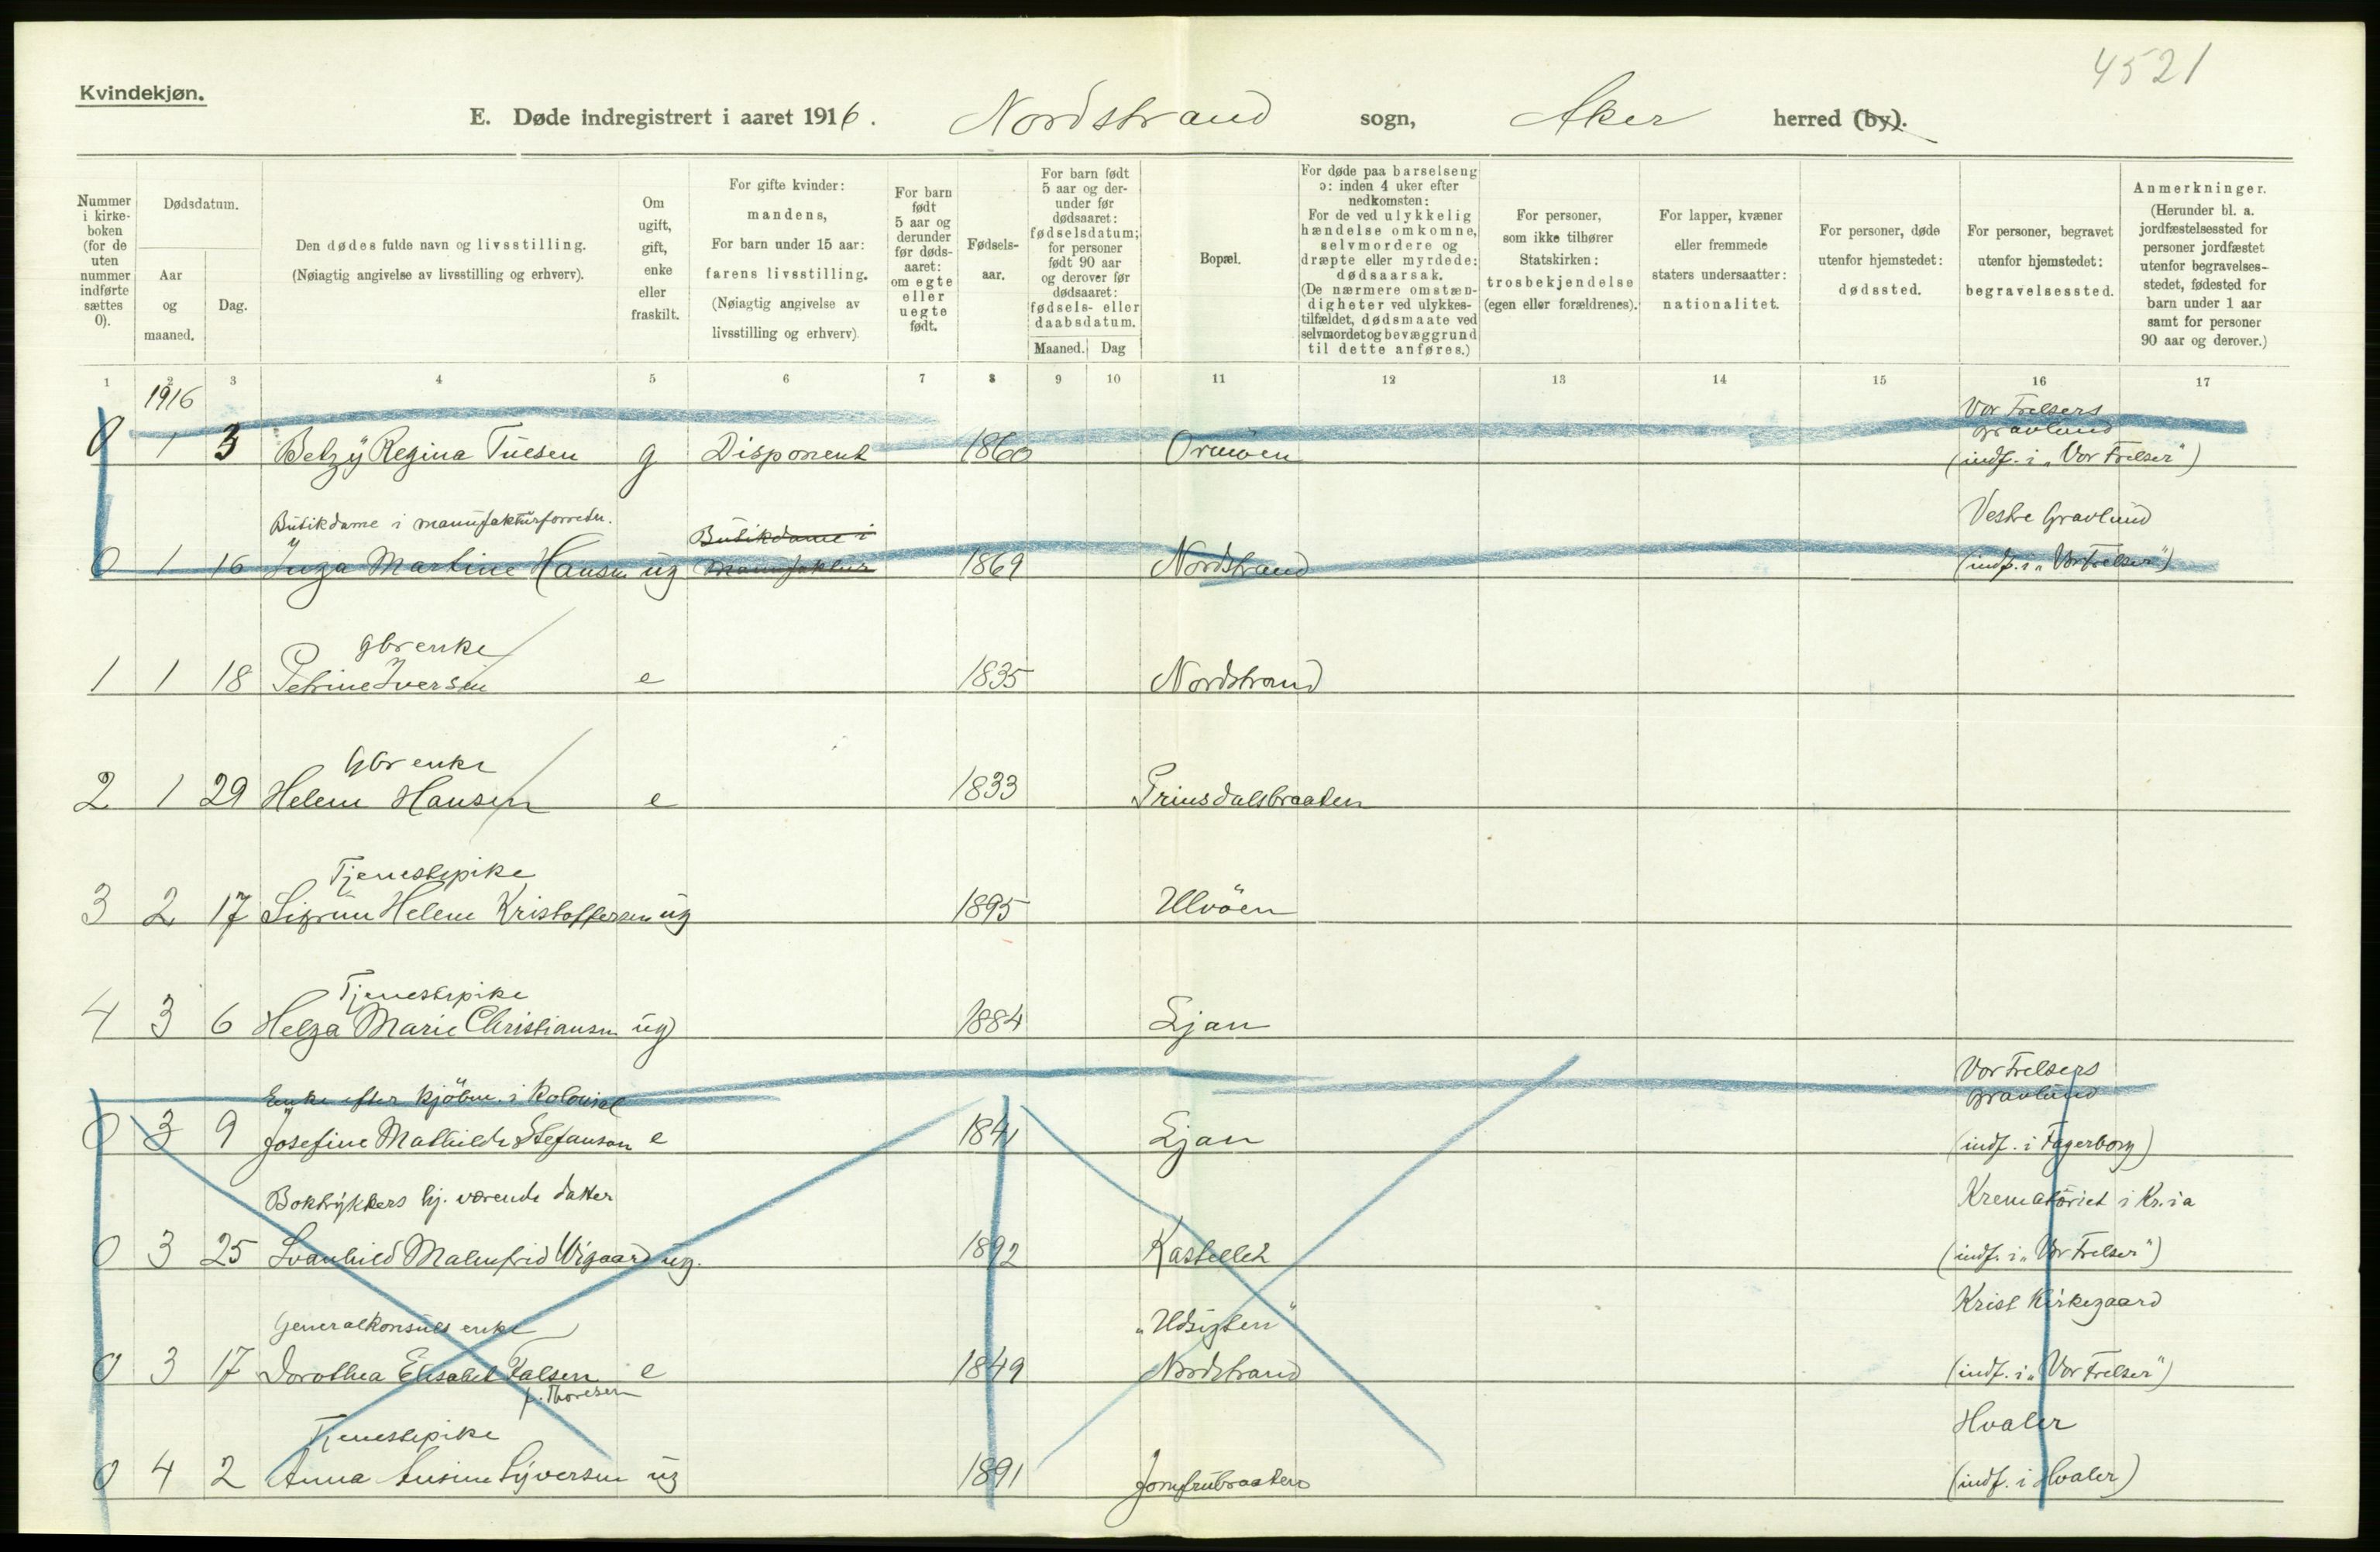 4521
Kvindekjøn.
E. Døde indregistrert i aaret 1916. Nordstrand sogn, Aker herred (by).
Nummer i kirke- boken (for de uten nummer indførte sættes 0).
Dødsdatum.
Aar og maaned.
Dag.
Den dødes fulde navn og livsstilling.
(Nøiagtig angivelse av livsstilling og erhverv).
Om ugift, gift, enke eller fraskilt.
For gifte kvinder: mandens, For barn under 15 aar: farens livsstilling. (Nøiagtig angivelse av livsstilling og erhverv)
For barn født 5 aar og derunder før døds- aaret: om egte eller uegte født.
Fødsels- aar.
For barn født 5 aar og der- under før dødsaaret: fødselsdatum; for personer født 90 aar og derover før dødsaaret: fødsels- eller daabsdatum.
Maaned. Dag
Bopæl.
For døde paa barselseng ɔ: inden 4 uker efter nedkomsten: For de ved ulykkelig hændelse omkomne, selvmordere og dræpte eller myrdede: dødsaarsak. (De nærmere omstæn- digheter ved ulykkes- tilfældet, dødsmaate ved selvmordet og bevæggrund til dette anføres.)
For personer, som ikke tilhører Statskirken: trosbekjendelse (egen eller forældrenes).
For lapper, kvæner eller fremmede staters undersaatter: nationalitet.
For personer, døde utenfor hjemstedet: dødssted.
For personer, begravet utenfor hjemstedet: begravelsessted.
Anmerkninger. (Herunder bl. a. jordfæstelsessted for personer jordfæstet utenfor begravelses- stedet, fødested for barn under 1 aar samt for personer 90 aar og derover.)
1 2 3 4 5 6 7 8 9 10 11 12 13 14 15 16 17
1916
Vor Frelsers
Gravlund
0 1 3 Betzy Regina Tuesen g Disponent 1860 Ormøen (indf. i "Vor Frelser")
Butikdame i manufakturforretn. Butikdame i Vestre Gravlund
0 1 16 Inga Martine Hansen ug manufaktur 1869 Nordstrand (indf. i "Vor Frelser")
Gbrenke
1 1 18 Petrine Iversen e 1835 Nordstrand
Gbr enke
2 1 29 Helene Hansen e 1833 Prinsdalsbraaten
Tjenestepike
3 2 17 Sigrun Helene Kristoffersen ug 1895 Ulvöen
Tjenestepike
4 3 6 Helga Marie Christiansen ug 1884 Ljan
Vor Frelsers
Enke efter kjöbm. i Kolonial Gravlund
0 3 9 Josefine Mathilde Stefanson e 1841 Ljan (indf. i Fagerborg)
Boktrykkers hj. værende datter Krematoriet i Kr.ia
0 3 25 Svanhild Malmfrid Wigaard ug. 1892 Kastellet (indf. i "Vor Frelser")
Generalkonsuls enke "Udsigten" Krist Kirkegaard
0 3 17 Dorothea Elisabet Falsen e 1849 Nordstrand (indf. i "Vor Frelser")
f. Thoresen
Tjenestepike Hvaler
0 4 2 Anna Syversen ug 1891 Jomfrubraaten (indf. i Hvaler)